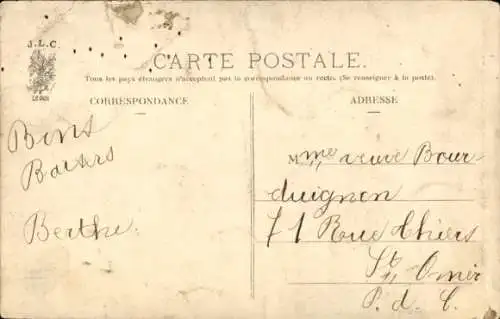 J.L.C.
CARTE POSTALE.
Tous les pays étrangers n'acceptent pas la correspondance au recto. (Se renseigner à la poste).
CORRESPONDANCE
ADRESSE
Bons
Baisers
Berthe.
Mme veuve Bour
duignon
71 Rue Thiers
St Omer
P. d. C.